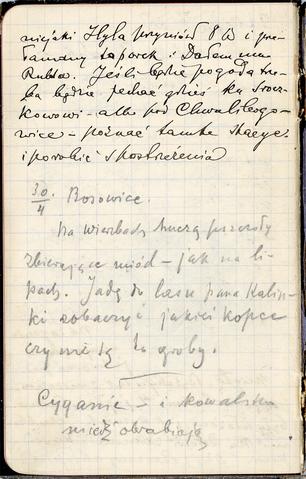 niejaki Hyla przyniósł 8 W i przełamany toporek i Dałem mu
Rubla. Jeśli będzie pogoda trzeba będzie jechać gdzieś ku
kowowi – albo pod Chwalibogowice – poznać tamte stacye
i porobić spostrzeżenia
30/4 Borowice.
Na wierzbach huczą pszczoły
zbierające miód – jak na lipach. Jadę do lasu pana Kaliński zobaczyć jakieś kopce
czy nie są to groby.
Cyganie – i kowalstwo
miedź obrabiają